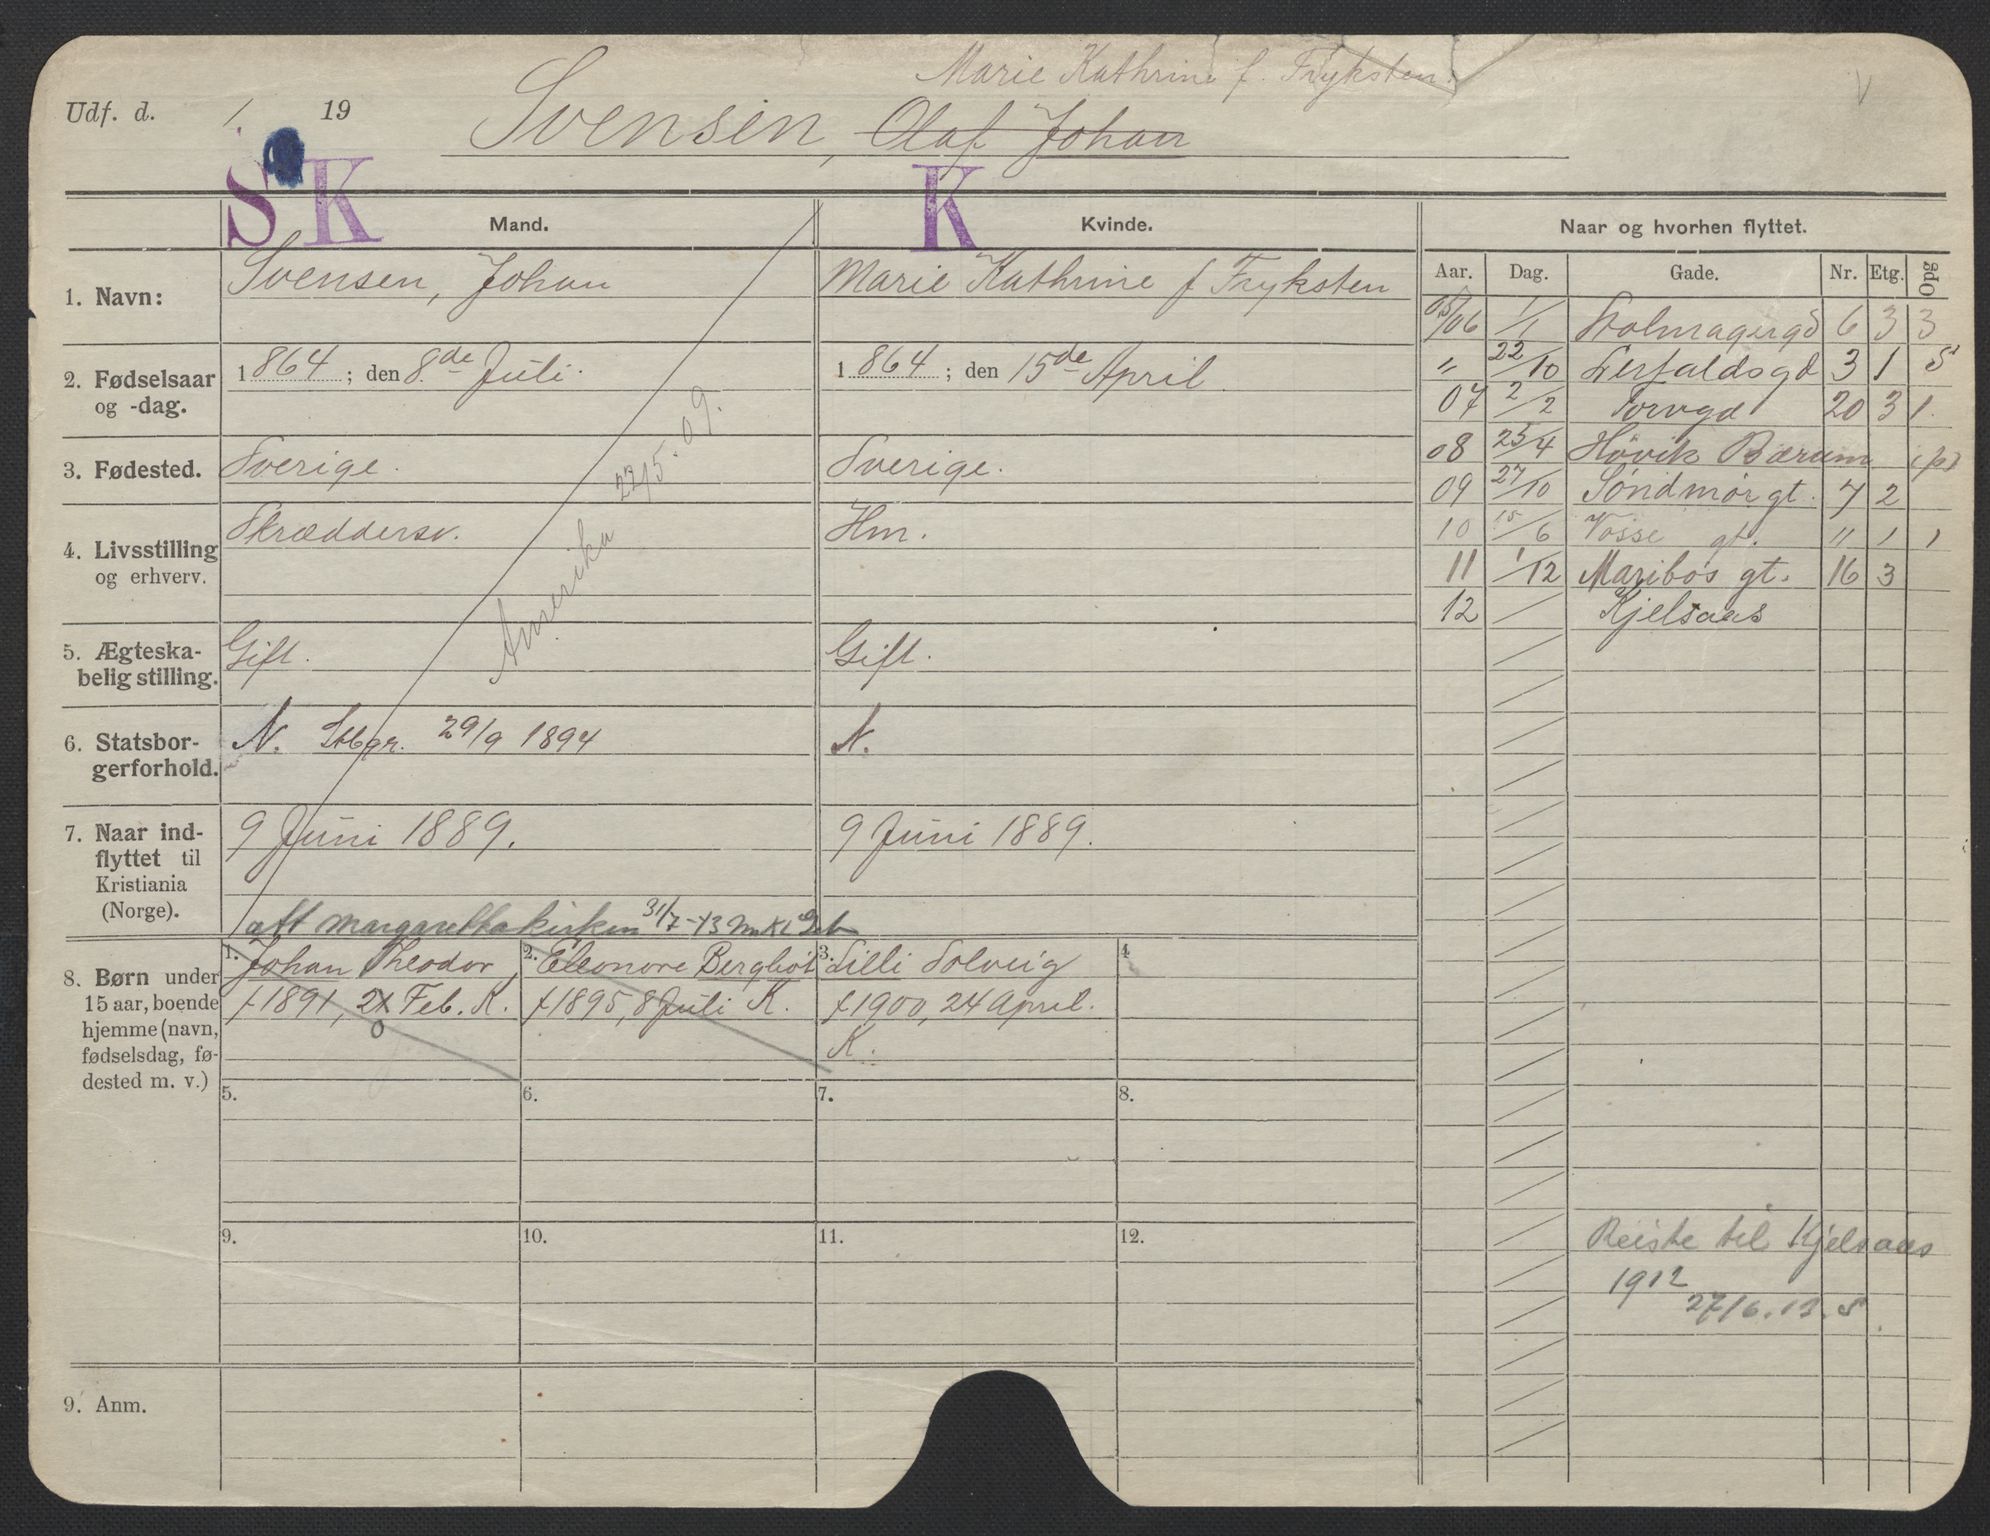 Marie Kathrine f. Fryksten.
Udf. d. / 19 Svensen, Olaf Johan
S K K
Mand. Kvinde. Naar og hvorhen flyttet.
Aar. Dag. Gade. Nr. Etg. Opg
1. Navn: Svensen, Johan Marie Kathrine f Fryksten
2. Fødselsaar og -dag. 1864; den 8de Juli. 1864; den 15de April.
3. Fødested. Sverige. Sverige.
4. Livsstilling og erhverv. Skræddersv. Hm.
5. Ægteskabelig stilling. Gift. Gift.
6. Statsborgerforhold. N. Stbgr. 29/9 1894 N.
7. Naar indflyttet til Kristiania (Norge). 9 Juni 1889. 9 Juni 1889.
Amerika 22/5. 09.
att margarettakirken 31/7-13
8. Børn under
15 aar, boende
hjemme (navn,
fødselsdag, fødested m. v.)
1. Johan Theodor,
f 1891, 2 Feb. K.
2. Eleonore Bergliot
f 1895, 8 Juli K.
3. Lilli Solveig
f 1900, 24 April.
K.
4.
5. 6. 7. 8.
9. 10. 11. 12.
9. Anm.
05/06 1/1 Stolmagergd 6 3 3
" 22/10 Lerfaldsgd 3 1 S
07 2/2 Torvgd 20 3 1.
08 25/4 Høvik Bærum (p)
09 27/10 Søndmørgt. 7 2
10 15/6 Vosse gt. " 1 1
11 1/12 Maribos gt. 16 3
12 / Kjelsaas
Reiste til Kjelsaas
1912
27/6. 13. S.